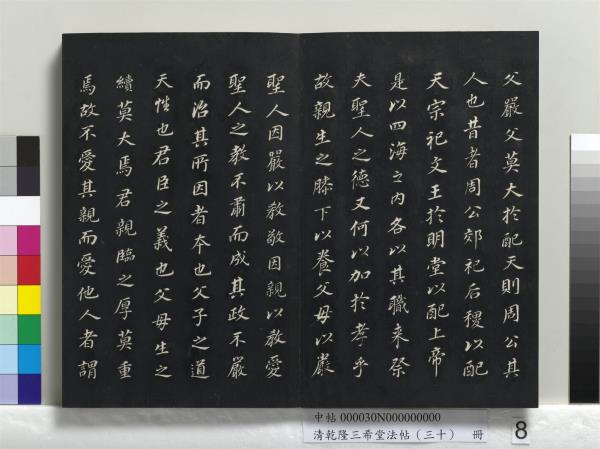 父嚴父莫大於配天則周公其
人也昔者周公郊祀后稷以配
天宗祀文王於明堂以配上帝
是以四海之内各以其職来祭
夫聖人之德又何以加於孝乎
故親生之膝下以養父母以嚴
聖人因嚴以教敬因親以教愛
聖人之教不肅而成其政不嚴
而治其所因者本也父子之道
天性也君臣之義也父母生之
續莫大焉君親臨之厚莫重
焉故不愛其親而愛他人者謂
中帖 000030N000000000
清乾隆三希堂法帖（三十） 冊
8